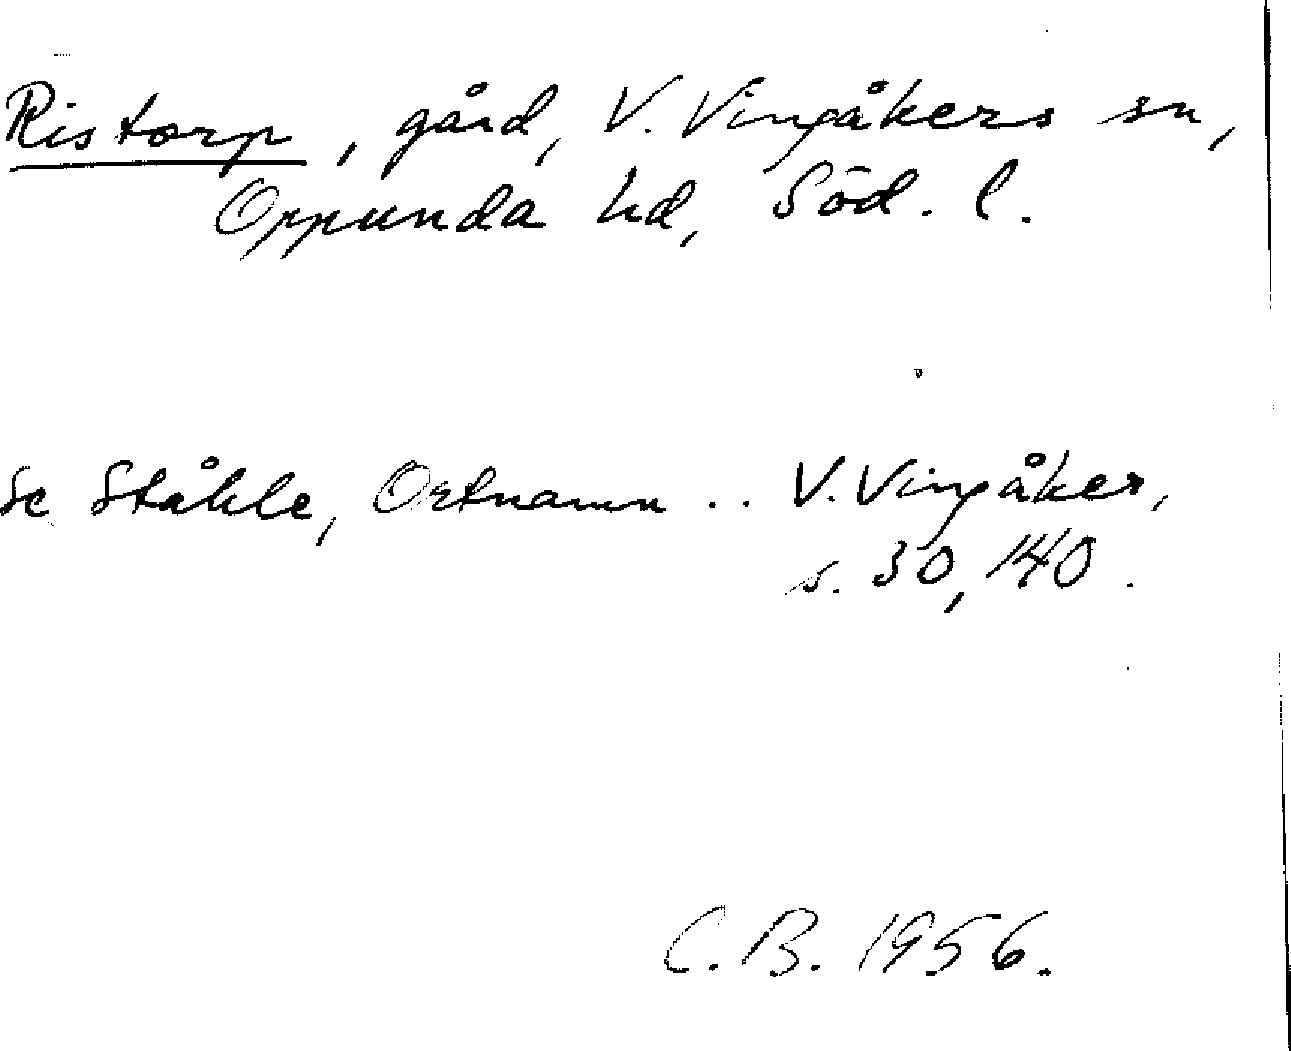 Ristorp, gård, V. Vingåkers sn,
Oppunda hd, Söd. l.
Se Ståhle, Ortnamn .. V. Vingåker,
s. 30, 140.
C. B. 1956.